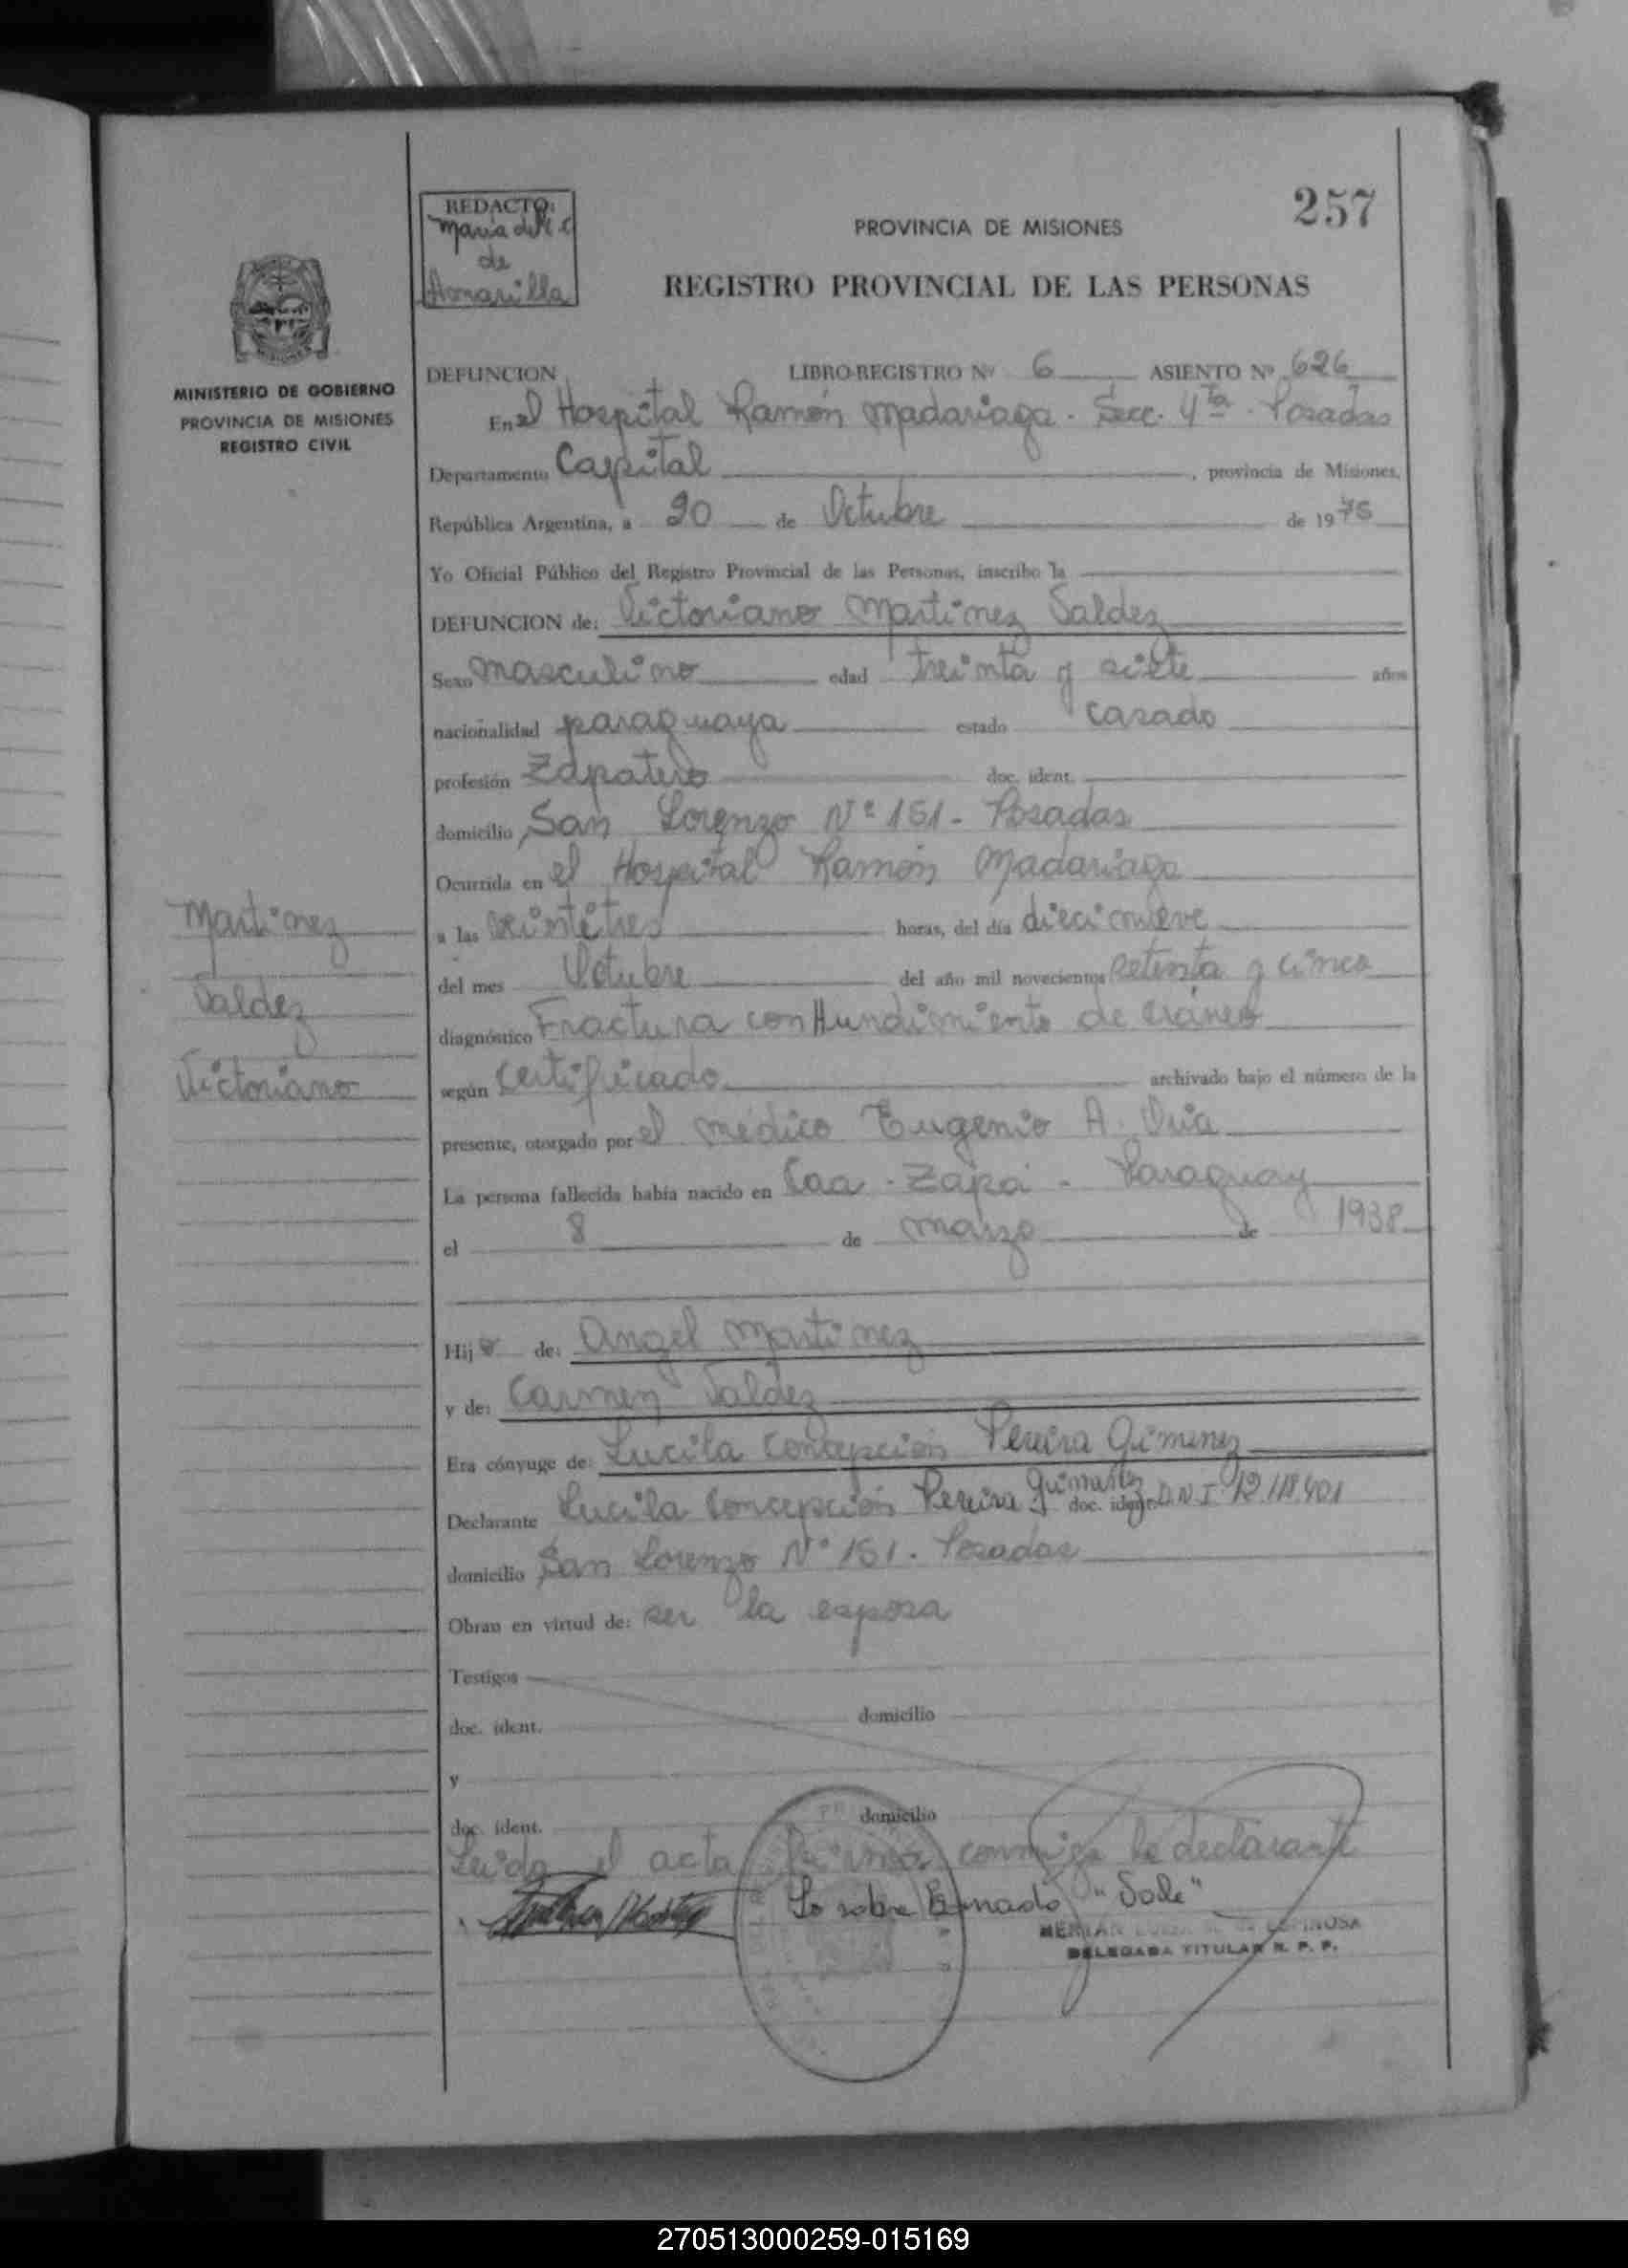 257
REDACTO:
Maria del C
de
Amarilla
PROVINCIA DE MISIONES
REGISTRO PROVINCIAL DE LAS PERSONAS
MINISTERIO DE GOBIERNO
PROVINCIA DE MISIONES
REGISTRO CIVIL
DEFUNCION LIBRO-REGISTRO Nº 6 ASIENTO Nº 626
En el Hospital Ramón Madariaga - Secc. 4ta - Posadas
Departamento Capital, provincia de Misiones,
República Argentina, a 20 de Octubre de 1975
Yo Oficial Público del Registro Provincial de las Personas, inscribo la
DEFUNCION de: Victoriano Martinez Valdez
Sexo masculino edad treinta y siete años
nacionalidad paraguaya estado casado
profesión Zapatero doc. ident.
domicilio San Lorenzo Nº 151 - Posadas
Ocurrida en el Hospital Ramón Madariaga
a las veintitres horas, del día diecinueve
del mes Octubre del año mil novecientos setenta y cinco
diagnóstico Fractura con Hundimiento de cráneo
según certificado archivado bajo el número de la
presente, otorgado por el médico Eugenio A.
La persona fallecida había nacido en Caa - Zapá - Paraguay
el 8 de marzo de 1938
Martinez
Valdez
Victoriano
Hijo de: Angel Martinez
y de: Carmen Valdez
Era cónyuge de: Lucila Concepción Pereira Gimenez
Declarante Lucila Concepción Pereira doc. ident. D.N.I. 12.118.401
domicilio San Lorenzo Nº 151 - Posadas
Obran en virtud de: ser la esposa
Testigos
doc. ident. domicilio
y
doc. ident. domicilio
Leida el acta firma conmigo la declarante
Lo sobre "Vale"
ESPINOSA
DELEGADA TITULAR R. P. P.
270513000259-015169